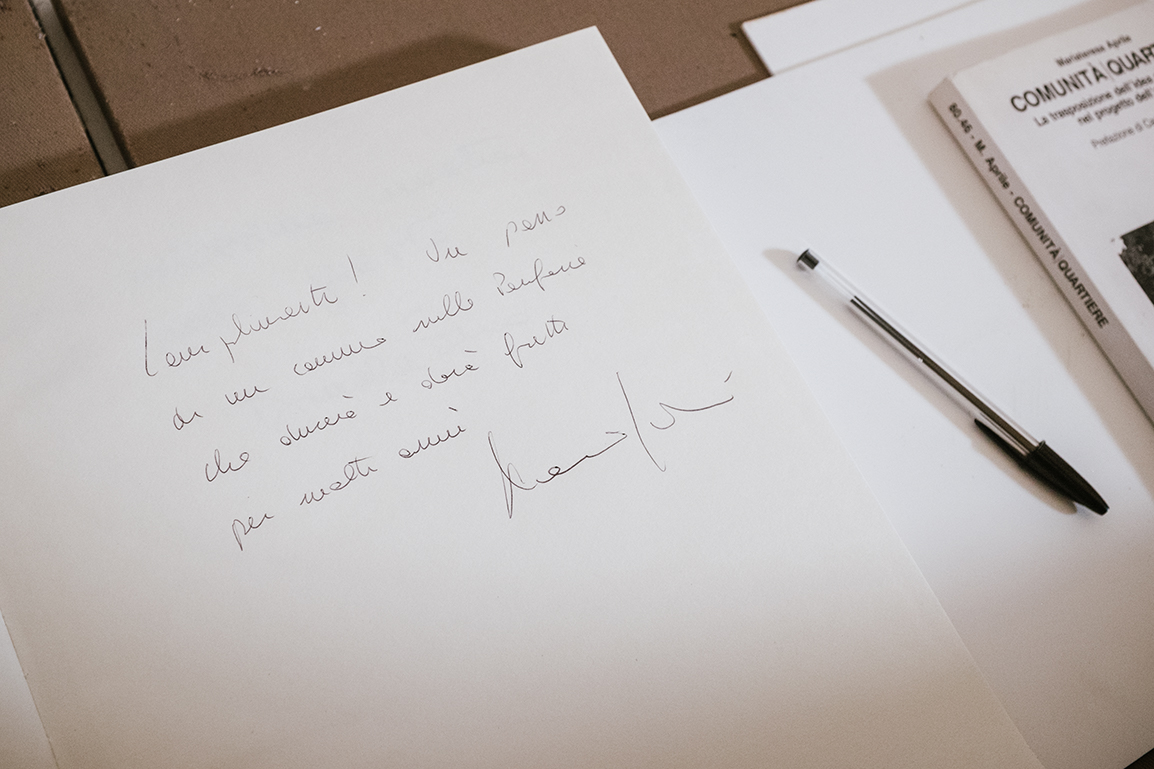 Complimenti! Un passo
di un cammino sulle Periferie
che durerà e darà frutti
per molti anni
Mariateresa Aprile
COMUNITÀ QUART
La trasposizione dell'idea
nel progetto dell'
Prefazione di
80.46 - M. Aprile - COMUNITÀ QUARTIERE